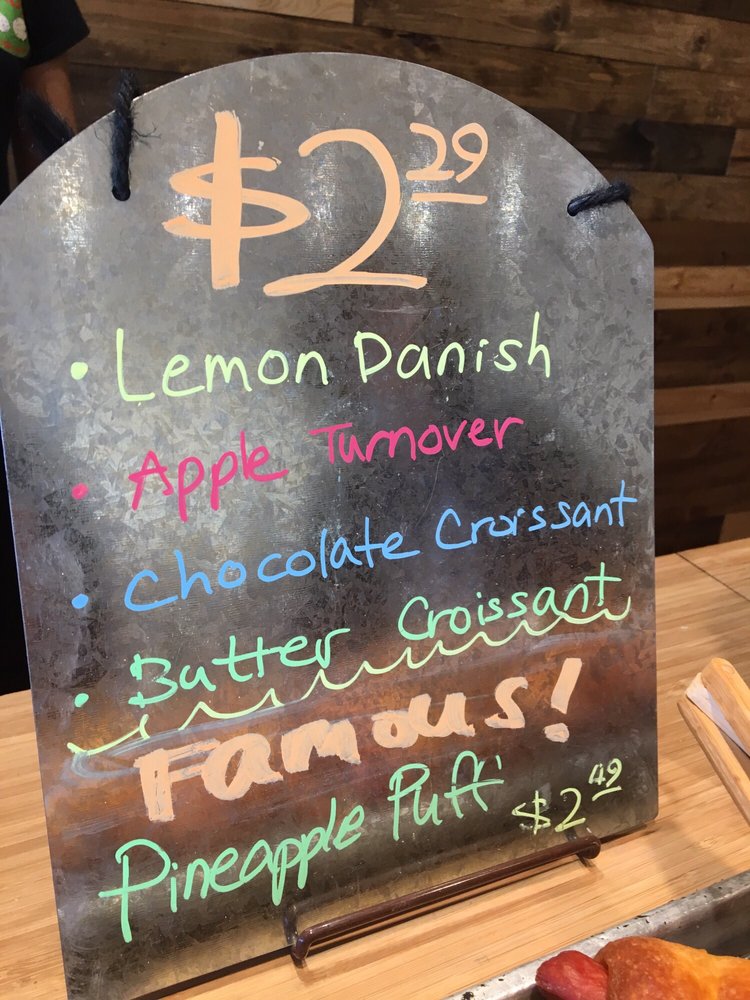 $2 29
• Lemon Danish
• Apple Turnover
• Chocolate Croissant
• Butter Croissant
Famous!
Pineapple Puff $2 49